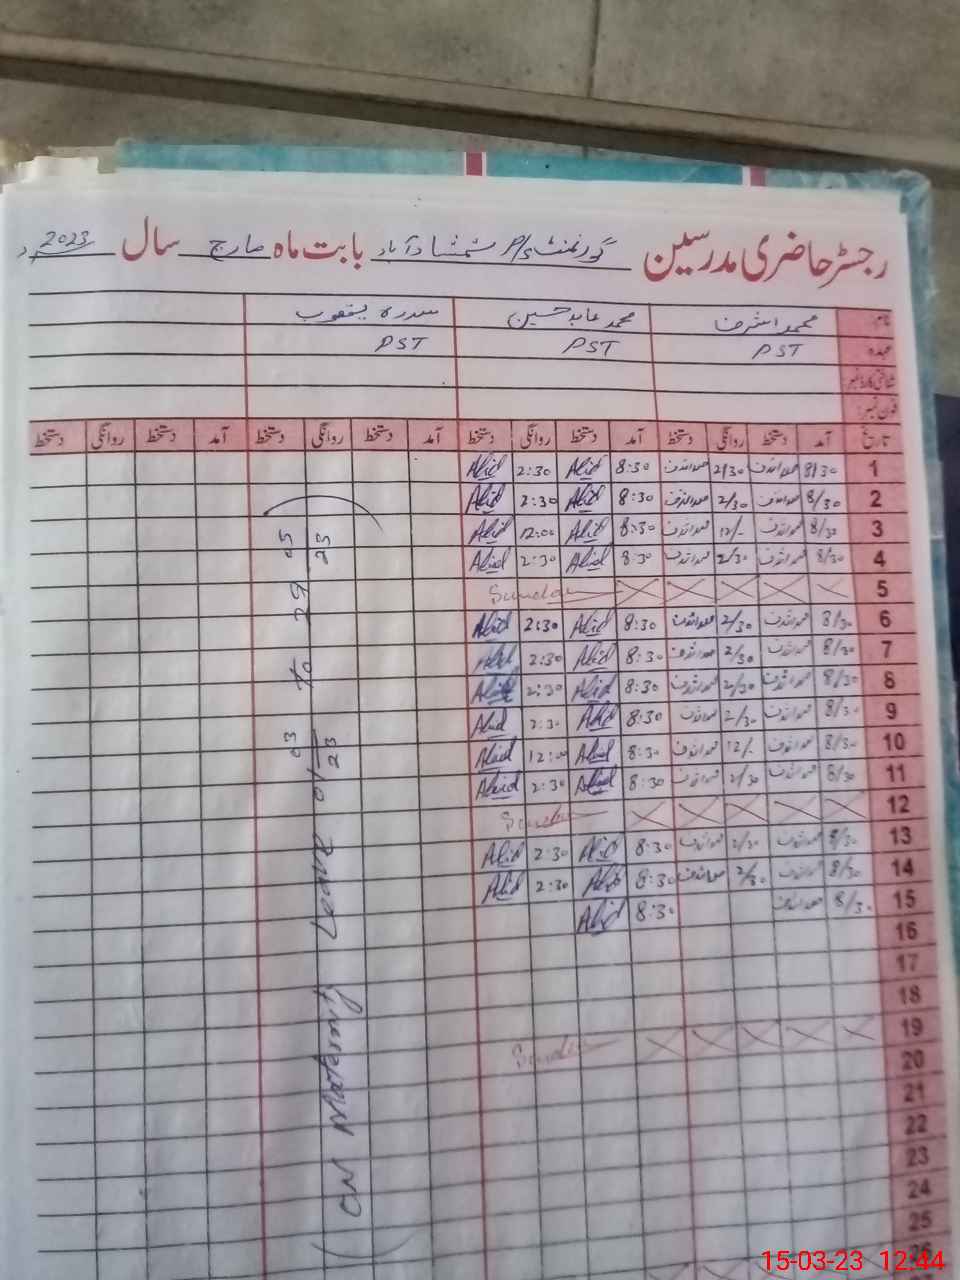 رجسٹر حاضری مدرسین گورنمنٹ P/S شمشاد آباد بابت ماہ مارچ سال 2023
نام محمد اشرف محمد عابد حسین سدرہ یعقوب
عہدہ PST PST PST
شناختی کارڈ نمبر:
فون نمبر:
تاریخ آمد دستخط روانگی دستخط آمد دستخط روانگی دستخط آمد دستخط روانگی دستخط آمد دستخط روانگی دستخط
1 8/30 محمد اشرف 2/30 محمد اشرف 8:30 Abid 2:30 Abid
2 8/30 محمد اشرف 2/30 محمد اشرف 8:30 Abid 2:30 Abid
3 8/30 محمد اشرف 12/- محمد اشرف 8:30 Abid 12:00 Abid
4 8/30 محمد اشرف 2/30 محمد اشرف 8:30 Abid 2:30 Abid
5 Sunday
6 8/30 محمد اشرف 2/30 محمد اشرف 8:30 Abid 2:30 Abid
7 8/30 محمد اشرف 2/30 محمد اشرف 8:30 Abid 2:30 Abid
8 8/30 محمد اشرف 2/30 محمد اشرف 8:30 Abid 2:30 Abid
9 8/30 محمد اشرف 2/30 محمد اشرف 8:30 Abid 2:30 Abid
10 8/30 محمد اشرف 12/- محمد اشرف 8:30 Abid 12:00 Abid
11 8/30 محمد اشرف 2/30 محمد اشرف 8:30 Abid 2:30 Abid
12 Sunday
13 8/30 محمد اشرف 2/30 محمد اشرف 8:30 Abid 2:30 Abid
14 8/30 محمد اشرف 2/30 محمد اشرف 8:30 Abid 2:30 Abid
15 8/30 محمد اشرف 8:30 Abid
16
17
18
19 Sunday
20
21
22
23
24
25
26
(ON Maternity Leave 01 03 23 to 29 05 23)
15-03-23 12:44